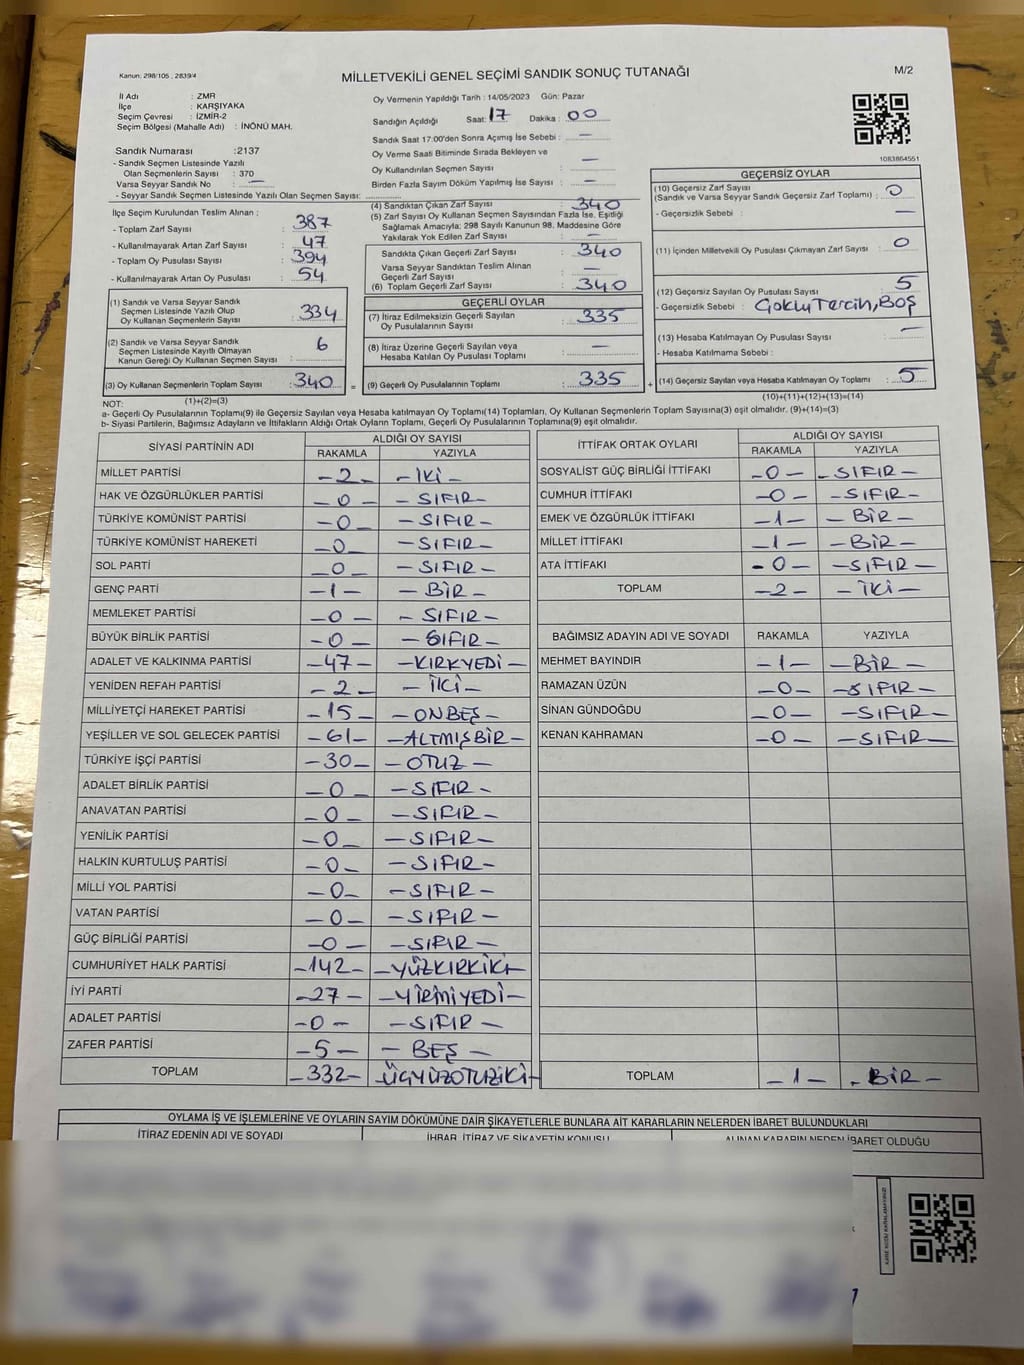 Kanun: 298/105 , 2839/4
MİLLETVEKİLİ GENEL SEÇİMİ SANDIK SONUÇ TUTANAĞI
M/2
İl Adı : ZMR
İlçe : KARŞIYAKA
Seçim Çevresi : İZMİR-2
Seçim Bölgesi (Mahalle Adı) : İNÖNÜ MAH.
Oy Vermenin Yapıldığı Tarih : 14/05/2023 Gün: Pazar
Sandığın Açıldığı Saat: 17 Dakika : 00
Sandık Saat 17:00'den Sonra Açımış İse Sebebi : —
Oy Verme Saati Bitiminde Sırada Bekleyen ve
Oy Kullandırılan Seçmen Sayısı : —
Birden Fazla Sayım Döküm Yapılmış İse Sayısı : —
1083864551
Sandık Numarası :2137
- Sandık Seçmen Listesinde Yazılı
Olan Seçmenlerin Sayısı : 370
Varsa Seyyar Sandık No : —
- Seyyar Sandık Seçmen Listesinde Yazılı Olan Seçmen Sayısı:
İlçe Seçim Kurulundan Teslim Alınan ;
- Toplam Zarf Sayısı : 387
- Kullanılmayarak Artan Zarf Sayısı : 47
- Toplam Oy Pusulası Sayısı : 394
- Kullanılmayarak Artan Oy Pusulası : 54
(1) Sandık ve Varsa Seyyar Sandık
Seçmen Listesinde Yazılı Olup
Oy Kullanan Seçmenlerin Sayısı : 334
(2) Sandık ve Varsa Seyyar Sandık
Seçmen Listesinde Kayıtlı Olmayan
Kanun Gereği Oy Kullanan Seçmen Sayısı : 6
(3) Oy Kullanan Seçmenlerin Toplam Sayısı : 340
(1)+(2)=(3)
(4) Sandıktan Çıkan Zarf Sayısı : 340
(5) Zarf Sayısı Oy Kullanan Seçmen Sayısından Fazla İse, Eşitliği
Sağlamak Amacıyla: 298 Sayılı Kanunun 98. Maddesine Göre
Yakılarak Yok Edilen Zarf Sayısı : —
Sandıkta Çıkan Geçerli Zarf Sayısı : 340
Varsa Seyyar Sandıktan Teslim Alınan
Geçerli Zarf Sayısı : —
(6) Toplam Geçerli Zarf Sayısı : 340
GEÇERLİ OYLAR
(7) İtiraz Edilmeksizin Geçerli Sayılan
Oy Pusulalarının Sayısı : 335
(8) İtiraz Üzerine Geçerli Sayılan veya
Hesaba Katılan Oy Pusulası Toplamı : —
= (9) Geçerli Oy Pusulalarının Toplamı : 335 +
GEÇERSİZ OYLAR
(10) Geçersiz Zarf Sayısı : 0
(Sandık ve Varsa Seyyar Sandık Geçersiz Zarf Toplamı)
- Geçersizlik Sebebi : —
(11) İçinden Milletvekili Oy Pusulası Çıkmayan Zarf Sayısı : 0
(12) Geçersiz Sayılan Oy Pusulası Sayısı : 5
- Geçersizlik Sebebi : Çoklu Tercih, Boş
(13) Hesaba Katılmayan Oy Pusulası Sayısı : —
- Hesaba Katılmama Sebebi :
(14) Geçersiz Sayılan veya Hesaba Katılmayan Oy Toplamı : 5
(10)+(11)+(12)+(13)=(14)
NOT:
a- Geçerli Oy Pusulalarının Toplamı(9) ile Geçersiz Sayılan veya Hesaba katılmayan Oy Toplamı(14) Toplamları, Oy Kullanan Seçmenlerin Toplam Sayısına(3) eşit olmalıdır. (9)+(14)=(3)
b- Siyasi Partilerin, Bağımsız Adayların ve İttifakların Aldığı Ortak Oyların Toplamı, Geçerli Oy Pusulalarının Toplamına(9) eşit olmalıdır.
SİYASİ PARTİNİN ADI ALDIĞI OY SAYISI
RAKAMLA YAZIYLA
MİLLET PARTİSİ -2- -İKİ-
HAK VE ÖZGÜRLÜKLER PARTİSİ -0- -SIFIR-
TÜRKİYE KOMÜNİST PARTİSİ -0- -SIFIR-
TÜRKİYE KOMÜNİST HAREKETİ -0- -SIFIR-
SOL PARTİ -0- -SIFIR-
GENÇ PARTİ -1- -BİR-
MEMLEKET PARTİSİ -0- -SIFIR-
BÜYÜK BİRLİK PARTİSİ -0- -SIFIR-
ADALET VE KALKINMA PARTİSİ -47- -KIRKYEDİ-
YENİDEN REFAH PARTİSİ -2- -İKİ-
MİLLİYETÇİ HAREKET PARTİSİ -15- -ONBEŞ-
YEŞİLLER VE SOL GELECEK PARTİSİ -61- -ALTMIŞBİR-
TÜRKİYE İŞÇİ PARTİSİ -30- -OTUZ-
ADALET BİRLİK PARTİSİ -0- -SIFIR-
ANAVATAN PARTİSİ -0- -SIFIR-
YENİLİK PARTİSİ -0- -SIFIR-
HALKIN KURTULUŞ PARTİSİ -0- -SIFIR-
MİLLİ YOL PARTİSİ -0- -SIFIR-
VATAN PARTİSİ -0- -SIFIR-
GÜÇ BİRLİĞİ PARTİSİ -0- -SIFIR-
CUMHURİYET HALK PARTİSİ -142- -YÜZKIRKİKİ-
İYİ PARTİ -27- -YİRMİYEDİ-
ADALET PARTİSİ -0- -SIFIR-
ZAFER PARTİSİ -5- -BEŞ-
TOPLAM -332- -ÜÇYÜZOTUZİKİ-
İTTİFAK ORTAK OYLARI ALDIĞI OY SAYISI
RAKAMLA YAZIYLA
SOSYALİST GÜÇ BİRLİĞİ İTTİFAKI -0- -SIFIR-
CUMHUR İTTİFAKI -0- -SIFIR-
EMEK VE ÖZGÜRLÜK İTTİFAKI -1- -BİR-
MİLLET İTTİFAKI -1- -BİR-
ATA İTTİFAKI -0- -SIFIR-
TOPLAM -2- -İKİ-
BAĞIMSIZ ADAYIN ADI VE SOYADI RAKAMLA YAZIYLA
MEHMET BAYINDIR -1- -BİR-
RAMAZAN ÜZÜN -0- -SIFIR-
SİNAN GÜNDOĞDU -0- -SIFIR-
KENAN KAHRAMAN -0- -SIFIR-
TOPLAM -1- -BİR-
OYLAMA İŞ VE İŞLEMLERİNE VE OYLARIN SAYIM DÖKÜMÜNE DAİR ŞİKAYETLERLE BUNLARA AİT KARARLARIN NELERDEN İBARET BULUNDUKLARI
İTİRAZ EDENİN ADI VE SOYADI İHBAR, İTİRAZ VE ŞİKAYETİN KONUSU ALINAN KARARIN NEDEN İBARET OLDUĞU